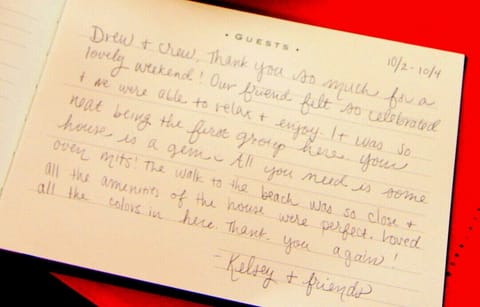 • GUESTS •
10/2 - 10/4
Drew + Crew, Thank you so much for a
lovely weekend! Our friend felt so celebrated
+ we were able to relax + enjoy. It was so
neat being the first group here. your
house is a gem. All you need is some
oven mits! The walk to the beach was so close +
all the amenities of the house were perfect. Loved
all the colors in here. Thank you again!
- Kelsey + friends